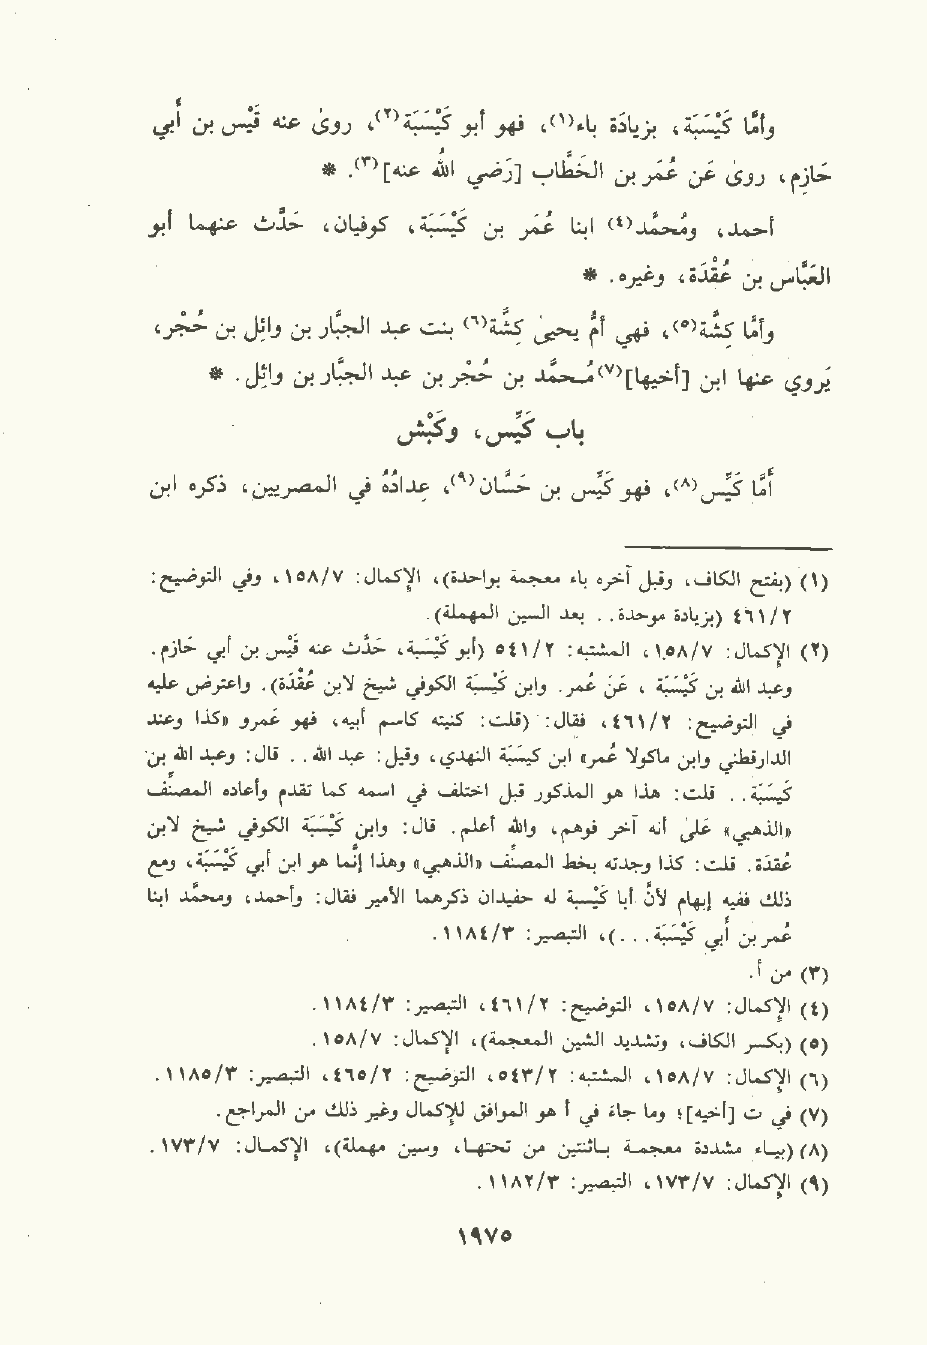 وأمَّا كَيْسَبَة، بزيادَة باء(١)، فهو أبو كَيْسَبَة(٢)، روىٰ عنه قَيْس بن أَبي
حَازِم، روىٰ عَن عُمَر بن الخَطَّاب [رَضي اللهُ عنه](٣). *
أحمد، ومُحمَّد(٤) ابنا عُمَر بن كَيْسَبَة، كوفيان، حَدَّث عنهما أبو
العَبَّاس بن عُقْدَة، وغيره. *
وأمَّا كِشَّة(٥)، فهي أُمّ يحيىٰ كِشَّة(٦) بنت عبد الجبَّار بن وائِل بن حُجْر،
يَروي عنها ابن [أخيها](٧) مُـحمَّد بن حُجْر بن عبد الجبَّار بن وائِل. *
باب كَيِّس، وكَبْش
أَمَّا كَيِّس(٨)، فهو كَيِّس بن حَسَّان(٩)، عِدادُهُ في المصريين، ذكره ابن
(١) (بفتح الكاف، وقبل آخره باء معجمة بواحدة)، الإكمال: ١٥٨/٧، وفي التوضيح:
٤٦١/٢ (بزيادة موحدة.. بعد السين المهملة).
(٢) الإكمال: ١٥٨/٧، المشتبه: ٥٤١/٢ (أبو كَيْسَبَة، حَدَّث عنه قَيْس بن أبي حَازم.
وعبد الله بن كَيْسَبَة، عَن عُمر. وابن كَيْسَبَة الكوفي شيخ لابن عُقْدَة). واعترض عليه
في التوضيح: ٤٦١/٢، فقال: (قلت: كنيته كاسم أبيه، فهو عمرو «كذا وعند
الدارقطني وابن ماكولا عُمر» ابن كَيْسَبَة النهدي، وقيل: عبد الله.. قال: وعبد الله بن
كَيْسَبَة.. قلت: هذا هو المذكور قبل اختلف في اسمه كما تقدم وأعاده المصنِّف
«الذهبي» علىٰ أنه آخر فوهم، والله أعلم. قال: وابن كَيْسَبَة الكوفي شيخ لابن
عُقدَة. قلت: كذا وجدته بخط المصنِّف «الذهبي» وهذا إنَّما هو ابن أبي كَيْسَبَة، ومع
ذلك ففيه إبهام لأنَّ أبا كَيْسَبة له حفيدان ذكرهما الأمير فقال: وأحمد، ومحمَّد ابنا
عُمر بن أَبي كَيْسَبَة...)، التبصير: ١١٨٤/٣.
(٣) من أ.
(٤) الإكمال: ١٥٨/٧، التوضيح: ٤٦١/٢، التبصير: ١١٨٤/٣.
(٥) (بكسر الكاف، وتشديد الشين المعجمة)، الإكمال: ١٥٨/٧.
(٦) الإكمال: ١٥٨/٧، المشتبه: ٥٤٣/٢، التوضيح: ٤٦٥/٢، التبصير: ١١٨٥/٣.
(٧) في ت [أخيه]؛ وما جاء في أ هو الموافق للإكمال وغير ذلك من المراجع.
(٨) (بيـاء مشددة معجمـة باثنتين من تحتهـا، وسين مهملة)، الإكمال: ١٧٣/٧.
(٩) الإكمال: ١٧٣/٧، التبصير: ١١٨٢/٣.
١٩٧٥